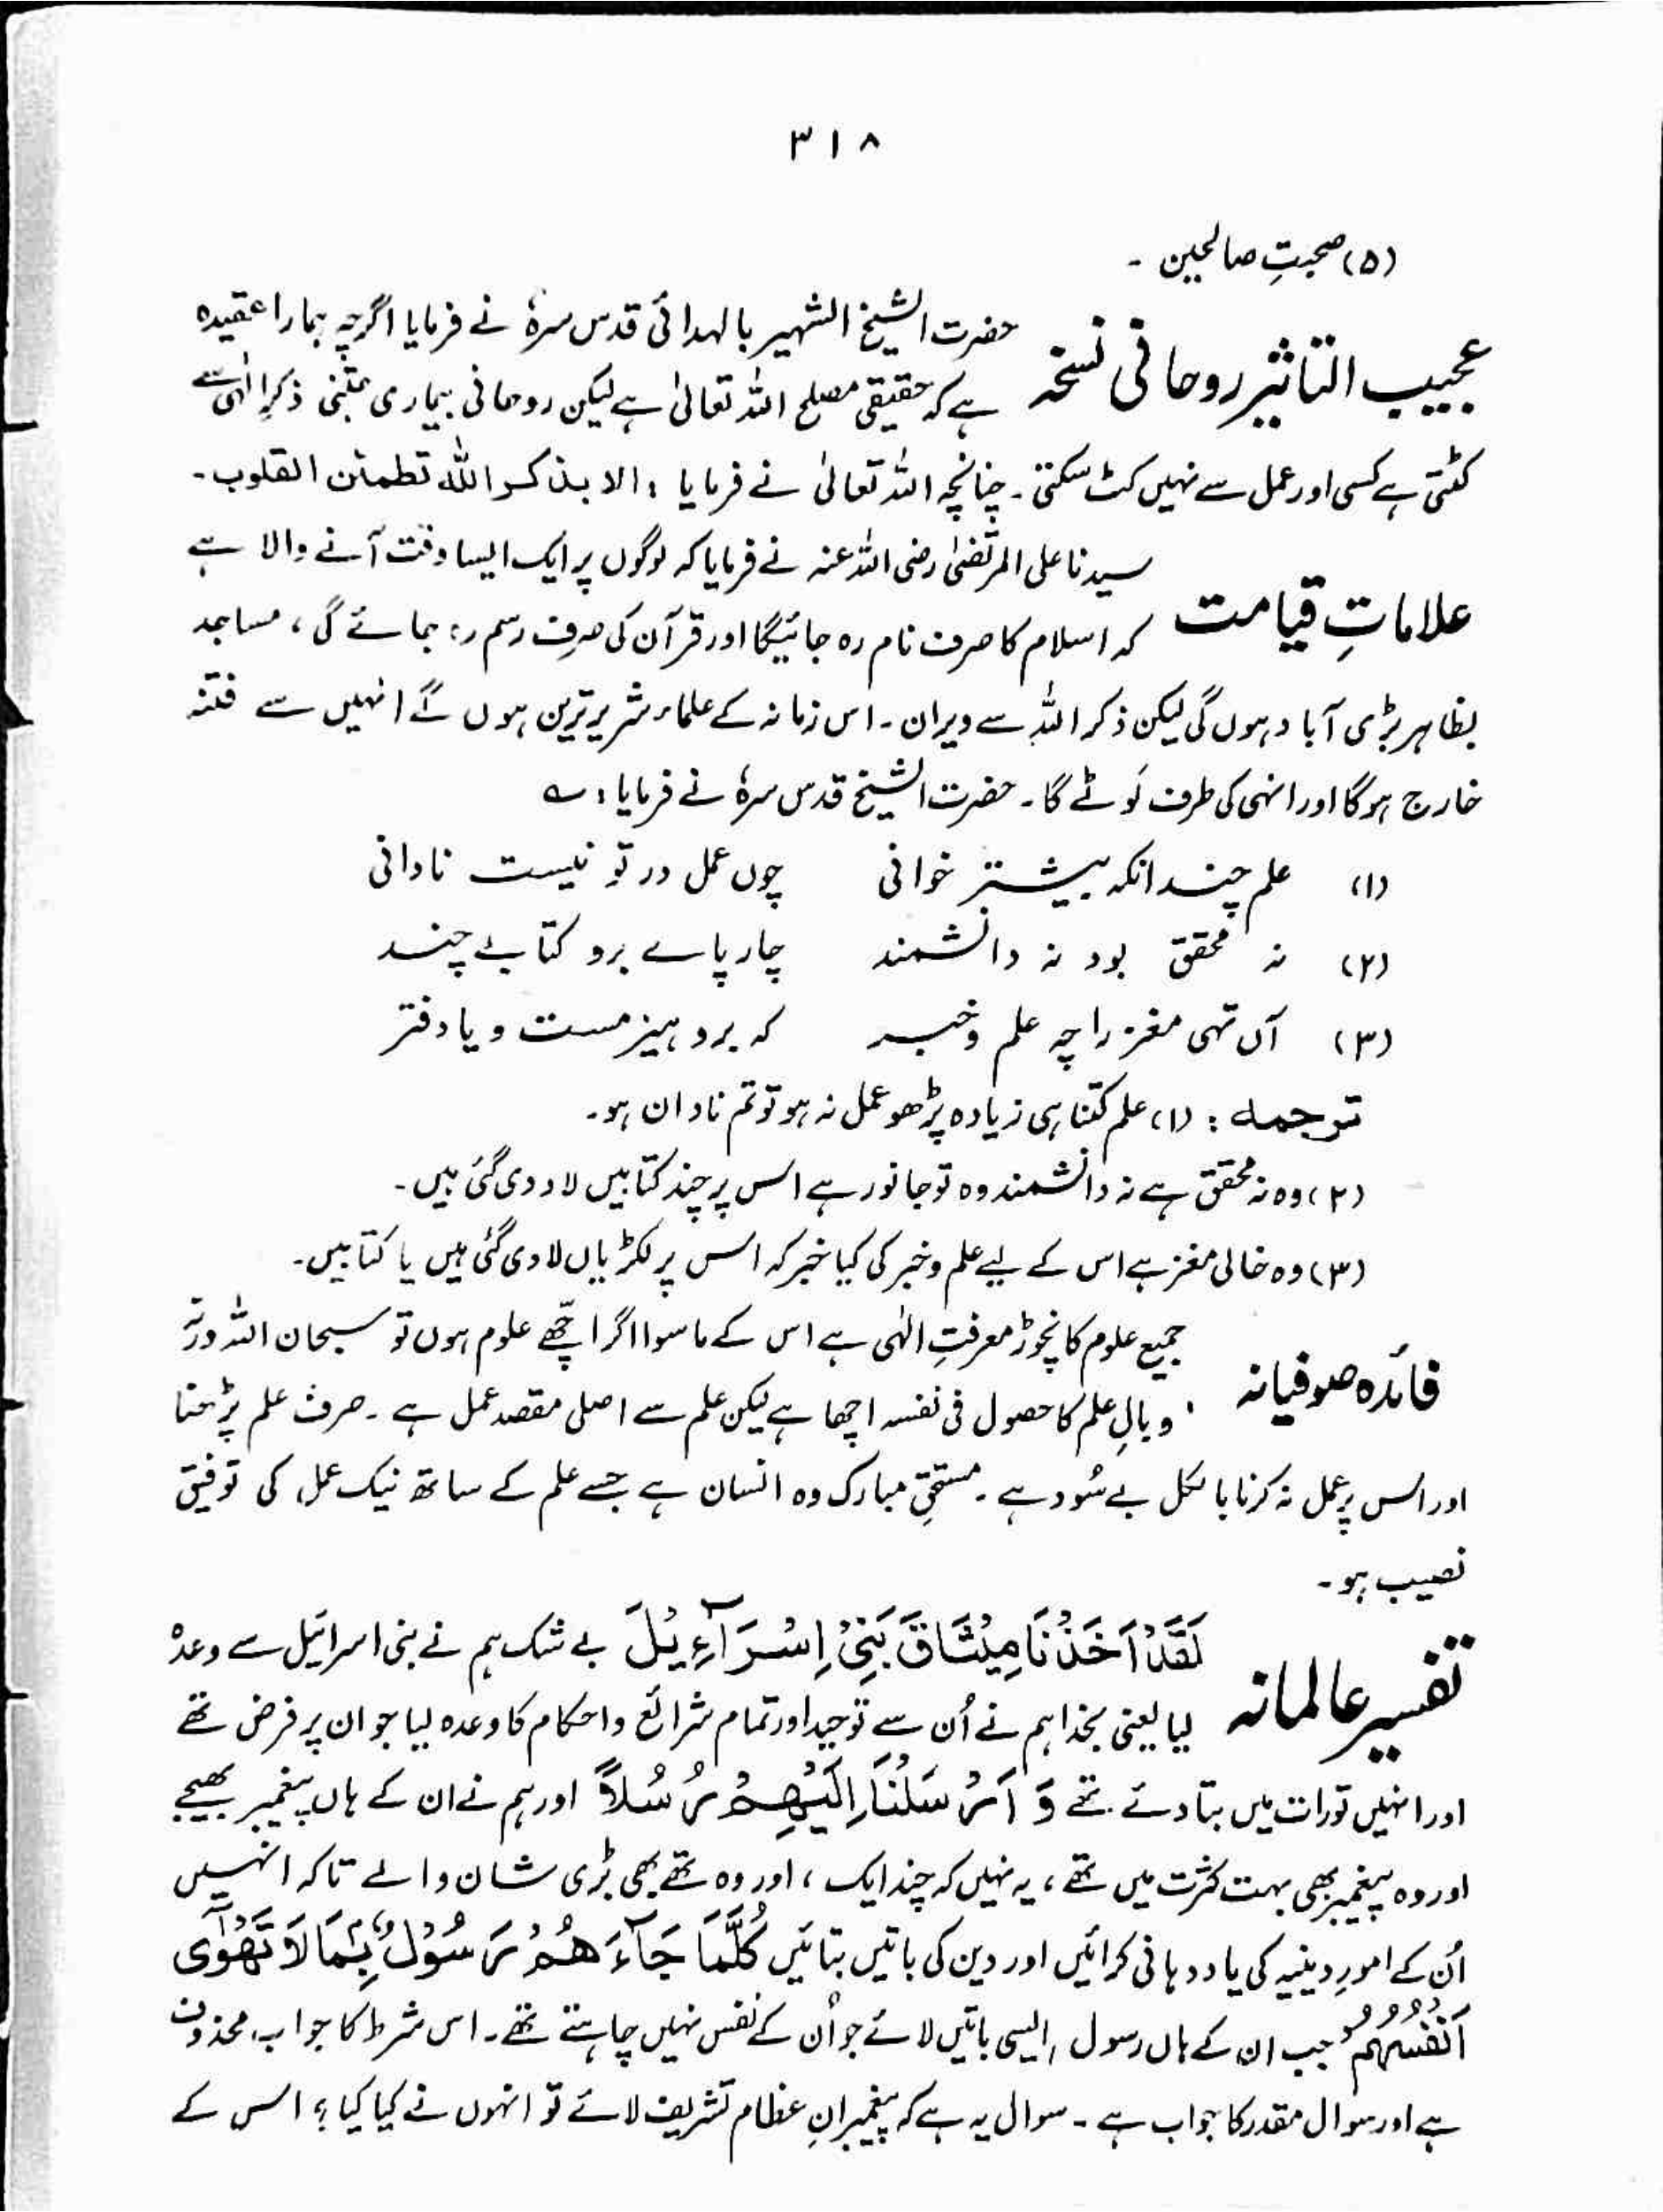 ۳۱۸
(۵) صحبتِ صالحین ۔
عجیب التاثیر روحانی نسخہ
حضرت الشیخ الشہیر بالہدائی قدس سرہٗ نے فرمایا اگرچہ ہمارا عقیدہ
ہے کہ حقیقی مصلح اللہ تعالیٰ ہے لیکن روحانی بیماری جتنی ذکرِ الٰہی سے
کٹتی ہے کسی اور عمل سے نہیں کٹ سکتی ۔ چنانچہ اللہ تعالیٰ نے فرمایا : الا بذکر اللہ تطمئن القلوب ۔
علاماتِ قیامت
سیدنا علی المرتضیٰ رضی اللہ عنہ نے فرمایا کہ لوگوں پر ایک ایسا وقت آنے والا ہے
کہ اسلام کا صرف نام رہ جائیگا اور قرآن کی صرف رسم رہ جائے گی ، مساجد
بظاہر بڑی آباد ہوں گی لیکن ذکر اللہ سے ویران ۔ اس زمانہ کے علماء شریر ترین ہوں گے انہیں سے فتنہ
خارج ہوگا اور انہی کی طرف لَوٹے گا ۔ حضرت الشیخ قدس سرہٗ نے فرمایا : ؎
(۱) علم چندانکہ بیشتر خوانی چوں عمل در تو نیست نادانی
(۲) نہ محقق بود نہ دانشمند چار پاے برو کتابے چند
(۳) آں تہی مغز را چہ علم و خبر کہ برو ہیزمست و یا دفتر
ترجمہ : (۱) علم کتنا ہی زیادہ پڑھو عمل نہ ہو تو تم نادان ہو ۔
(۲) وہ نہ محقق ہے نہ دانشمند وہ تو جانور ہے اس پر چند کتابیں لاد دی گئی ہیں ۔
(۳) وہ خالی مغز ہے اس کے لیے علم و خبر کی کیا خبر کہ اس پر لکڑیاں لادی گئی ہیں یا کتابیں ۔
فائدہ صوفیانہ
جمیع علوم کا نچوڑ معرفتِ الٰہی ہے اس کے ماسوا اگر اچھے علوم ہوں تو سبحان اللہ ورنہ
وبالِ علم کا حصول فی نفسہ اچھا ہے لیکن علم سے اصلی مقصد عمل ہے ۔ صرف علم پڑھنا
اور اس پر عمل نہ کرنا بالکل بے سُود ہے ۔ مستحقِ مبارک وہ انسان ہے جسے علم کے ساتھ نیک عمل کی توفیق
نصیب ہو ۔
تفسیر عالمانہ
لَقَدْ اَخَذْنَا مِیْثَاقَ بَنِیْٓ اِسْرَآءِیْلَ بے شک ہم نے بنی اسرائیل سے وعدہ
لیا یعنی بخدا ہم نے اُن سے توحید اور تمام شرائع و احکام کا وعدہ لیا جو ان پر فرض تھے
اور انہیں تورات میں بتا دئے تھے وَ اَرْسَلْنَآ اِلَیْھِمْ رُسُلًا اور ہم نے ان کے ہاں پیغمبر بھیجے
اور وہ پیغمبر بھی بہت کثرت میں تھے ، یہ نہیں کہ چند ایک ، اور وہ تھے بھی بڑی شان والے تاکہ انہیں
اُن کے امورِ دینیہ کی یاددہانی کرائیں اور دین کی باتیں بتائیں کُلَّمَا جَآءَ ھُمْ رَسُوْلٌۢ بِمَا لَا تَھْوٰٓی
اَنْفُسُھُمْ جب ان کے ہاں رسول ایسی باتیں لائے جو اُن کے نفس نہیں چاہتے تھے ۔ اس شرط کا جواب محذوف
ہے اور سوال مقدر کا جواب ہے ۔ سوال یہ ہے کہ پیغمبرانِ عظام تشریف لائے تو انہوں نے کیا کیا ؟ اس کے